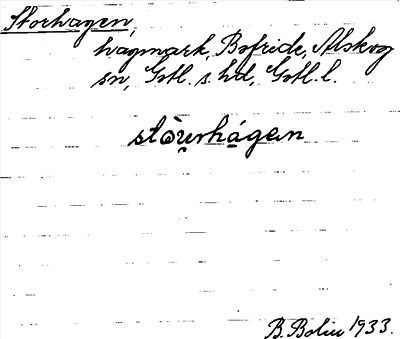 Storhagen,
hagmark, Bofride, Alskog
sn, Gotl. s. hd, Gotl. l.
stòu̯rhá̱gen
B. Bolin 1933.